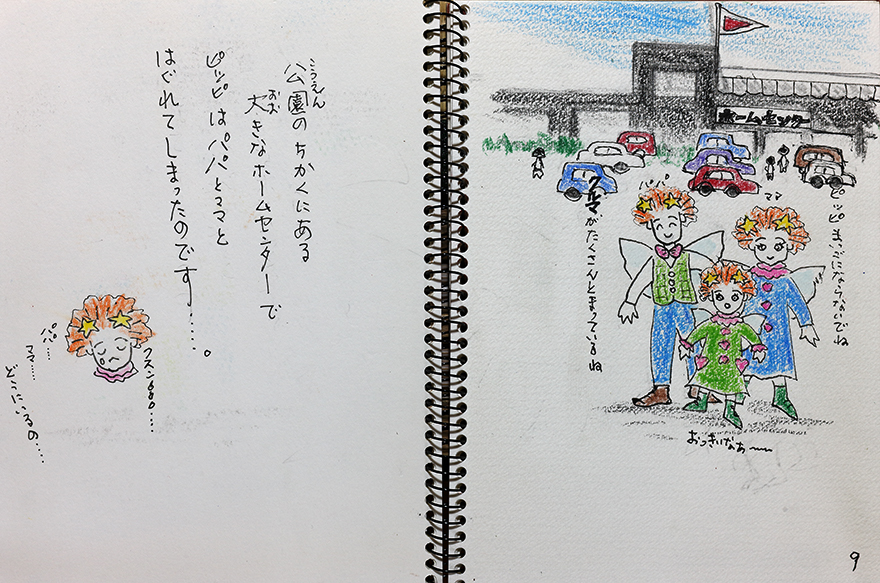 公園のちかくにある
こうえん
大きなホームセンターで
おお
ピッピはパパとママと
はぐれてしまったのです……。
クスン……
パパ…
ママ……
どこにいるの……
ホームセンター
ピッピまいごにならないでね
ママ
パパ
クルマがたくさんとまっているね
おっきいなあ〜
9